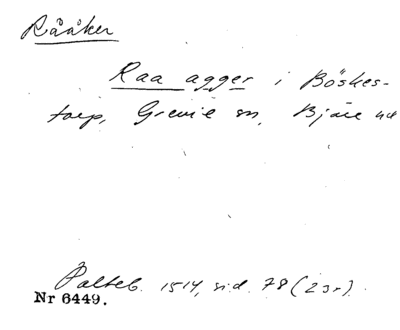 Rååker
Raa agger i Böskes-
torp, Grevie sn, Bjäre hd
Palteb. 1514, sid. 78 (2 sr).
Nr 6449.